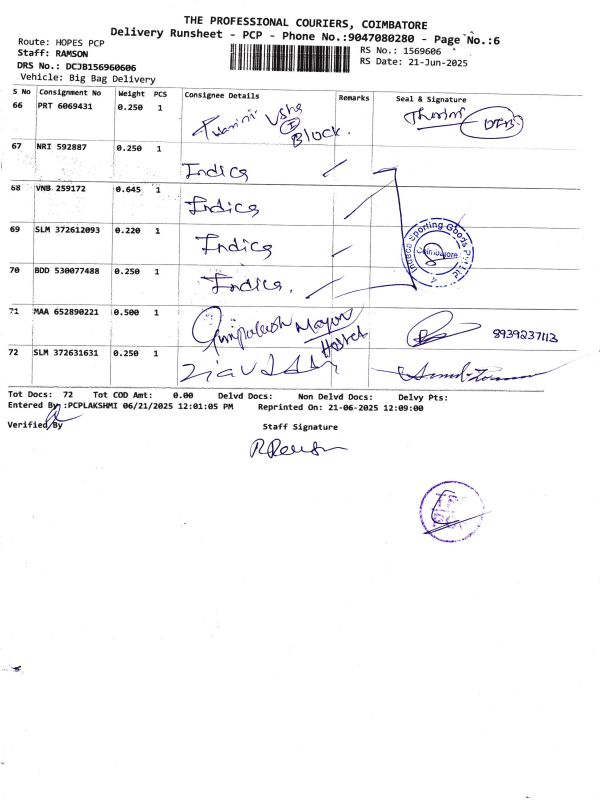 THE PROFESSIONAL COURIERS, COIMBATORE
Delivery Runsheet - PCP - Phone No.:9047080280 - Page No.:6
Route: HOPES PCP
Staff: RAMSON
RS No.: 1569606
DRS No.: DCJB156960606
RS Date: 21-Jun-2025
Vehicle: Big Bag Delivery
S No Consignment No Weight PCS Consignee Details Remarks Seal & Signature
66 PRT 6069431 0.250 1 Usha Block. Tharini
67 NRI 592887 0.250 1 Indica
68 VNB 259172 0.645 1 Indica
69 SLM 372612093 0.220 1 Indica
Indeca Sporting Goods Pvt Ltd
Coimbatore
70 BDD 530077488 0.250 1 Indica.
71 MAA 652890221 0.500 1 Mayor Hostel 8939237113
72 SLM 372631631 0.250 1
Tot Docs: 72 Tot COD Amt: 0.00 Delvd Docs: Non Delvd Docs: Delvy Pts:
Entered By :PCPLAKSHMI 06/21/2025 12:01:05 PM Reprinted On: 21-06-2025 12:09:00
Verified By Staff Signature